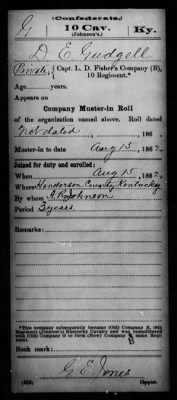 (Confederate.)
G 10 Cav. Ky.
(Johnson's.)
D. E. Gudgell
Private, Capt. L. D. Fisher's Company (B),
10 Regiment.*
Age years.
Appears on
Company Muster-in Roll
of the organization named above. Roll dated
Not dated, 186 .
Muster-in to date Aug 15, 1862.
Joined for duty and enrolled:
When Aug 15, 1862.
Where Henderson County Kentucky
By whom A. R. Johnson
Period 3 years.
Remarks:
*This company subsequently became (Old) Company B, 10th
Regiment (Johnson's) Kentucky Cavalry and was consolidated
with (Old) Company G to form (New) Company B, same Regi-
ment.
Book mark:
G. E. Jones
Copyist.